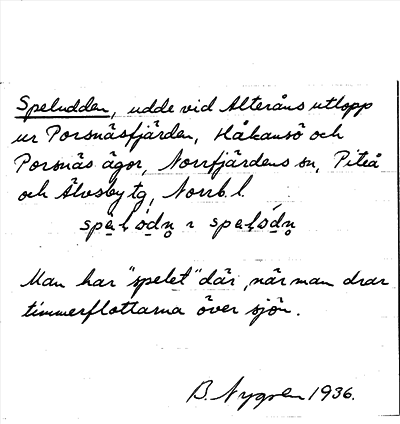 Speludden, udde vid Alteråns utlopp
ur Porsnäsfjärden, Håkansö och
Porsnäs ägor, Norrfjärdens sn, Piteå
och Älvsby tg, Norrb. l.
Man har "spelet" där, när man drar
timmerflottarna över sjön.
B. Nygren 1936.